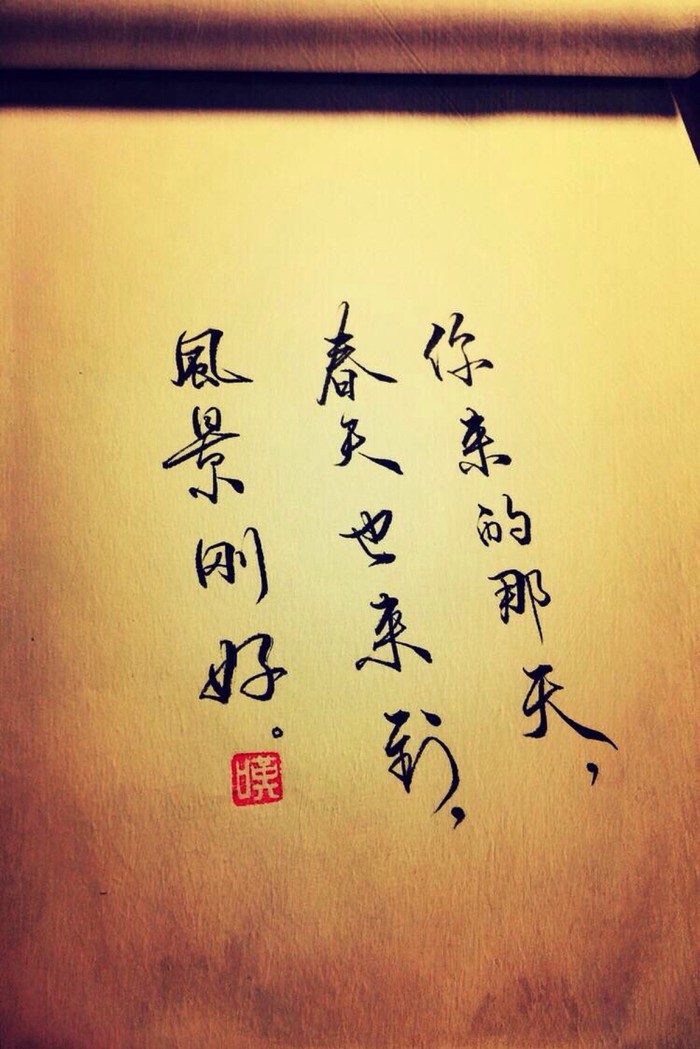 你來的那天，
春天也來到，
風景刚好。
嘆